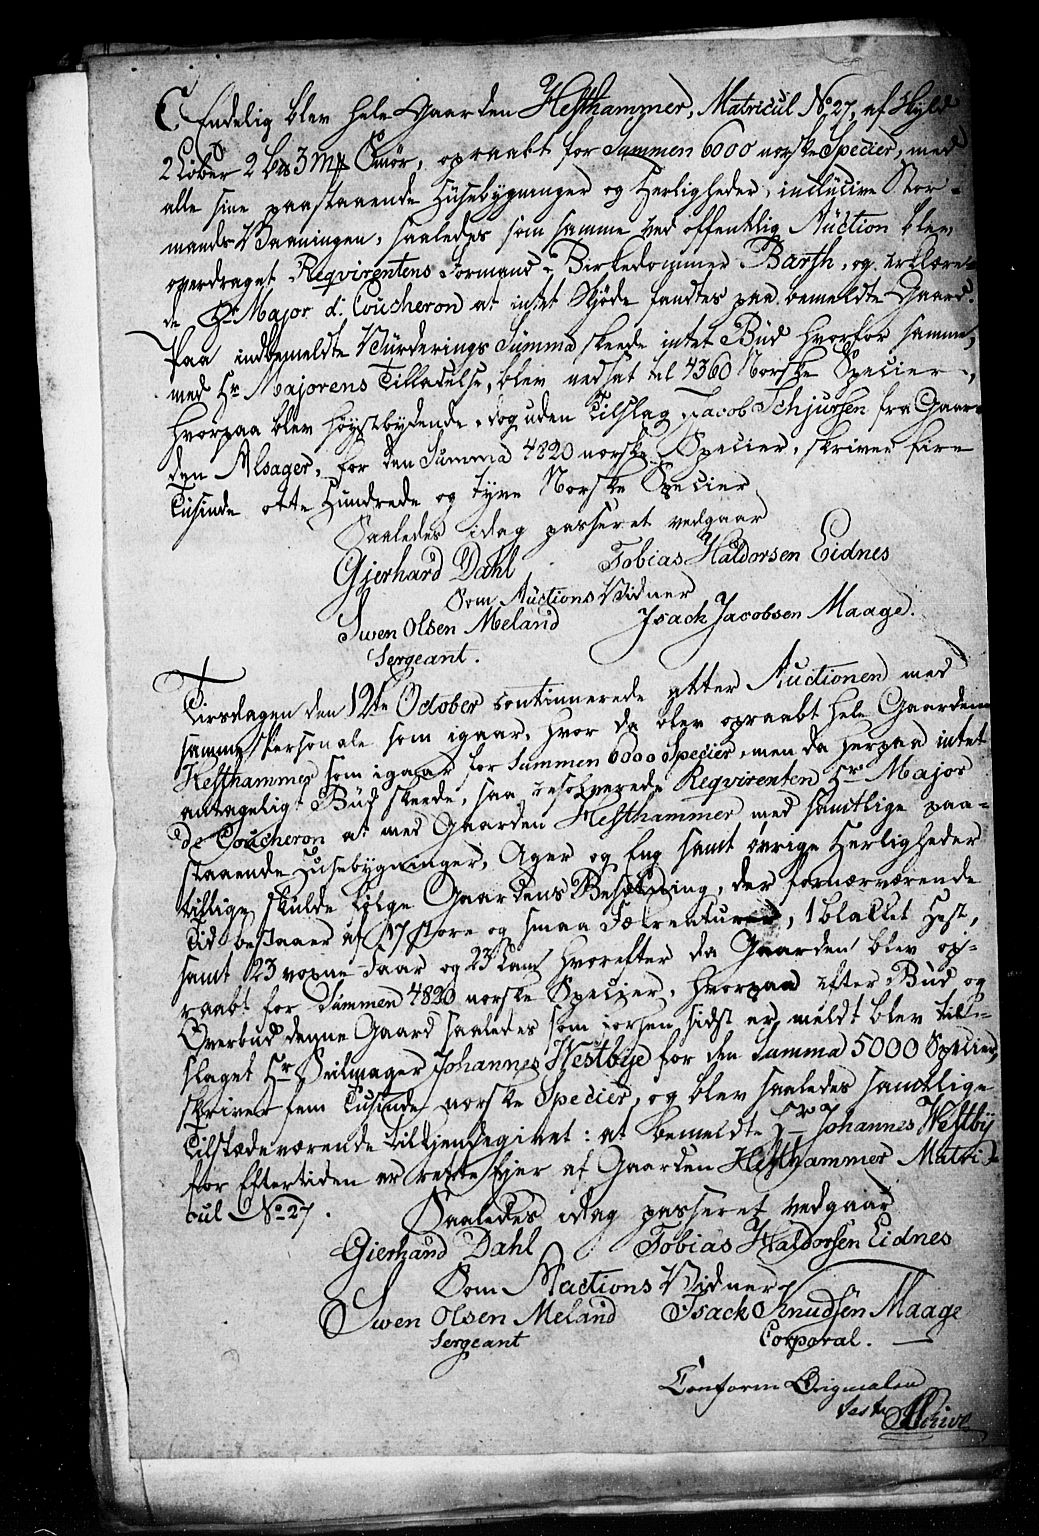 Endelig blev hele Gaarden Hesthammer, Matricul No 27, af Skyld
2 Løber 2 bd 3 Mrk Smør, opraabt for Summen 6000 norske Specier, med
alle sine paastaaende Huusebygninger og Herligheder, inclusive Stor-
mands Vaaningen, saaledes som samme ved offentlig Auction blev
overdraget Reqvirentens Formand Birkedommer Barth, og erklære-
de Hr Major d: Coucheron at intet Skjøde fandtes paa bemeldte Gaard.
Paa indbemeldte Vürderings Summa skeede intet Bud hvorfor samme,
med Hr Majorens Tilladelse, blev nedsat til 4360 Norske Specier,
hvorpaa blev høystbydende, dog uden Tilslag, Jacob Schjursen fra Gaar-
den Alsager, for den Summa 4820 norske Specier, skriver fire
Tusinde otte Hundrede og tyve Norske Specier
Saaledes idag passeret vedgaar
Gjerhard Dahl Tobias Haldorsen Eidnes
Som Auctions Vidner
Swen Olsen Meland Isach Jacobsen Maage.
Sergeant.
Tirsdagen den 12te October continuerede atter Auctionen med
samme Personale som igaar, hvor da blev opraabt hele Gaarden
Hesthammer som igaar for Summen 6000 Specier, men da herpaa intet
antageligt Bud skeede, saa resolverede Reqvirenten Hr Major
de Coucheron at med Gaarden Hesthammer med samtlige paa-
staaende Huusebygninger, Ager og Eng samt øvrige Herligheder
tillige skulde følge Gaardens Besætning, der fornærværende
Tid bestaaer af 17 store og smaa Fækreaturer, 1 blakket Hest,
samt 23 voxne Faar og 23 Lam, hvorefter da Gaarden blev op-
raabt for Summen 4820 norske Specier, hvorpaa efter Bud og
Overbud denne Gaard saaledes som forhen sidst er meldt blev til-
slaget Hr Seilmager Johannes Westbye for den Summa 5000 Specier,
skriver fem Tusinde norske Specier, og blev saaledes samtlige
Tilstædeværende tilkjendegivet: at bemeldte Hr Johannes Westby
for Eftertiden er rette Ejer af Gaarden Hesthammer Matri-
cul No 27.
Saaledes idag passeret vedgaar
Gierhard Dahl Tobias Haldorsen Eidnes
Som Auctions Vidner
Swen Olsen Meland Isack Knudsen Maage
Sergeant Corporal.
Conform Originalen